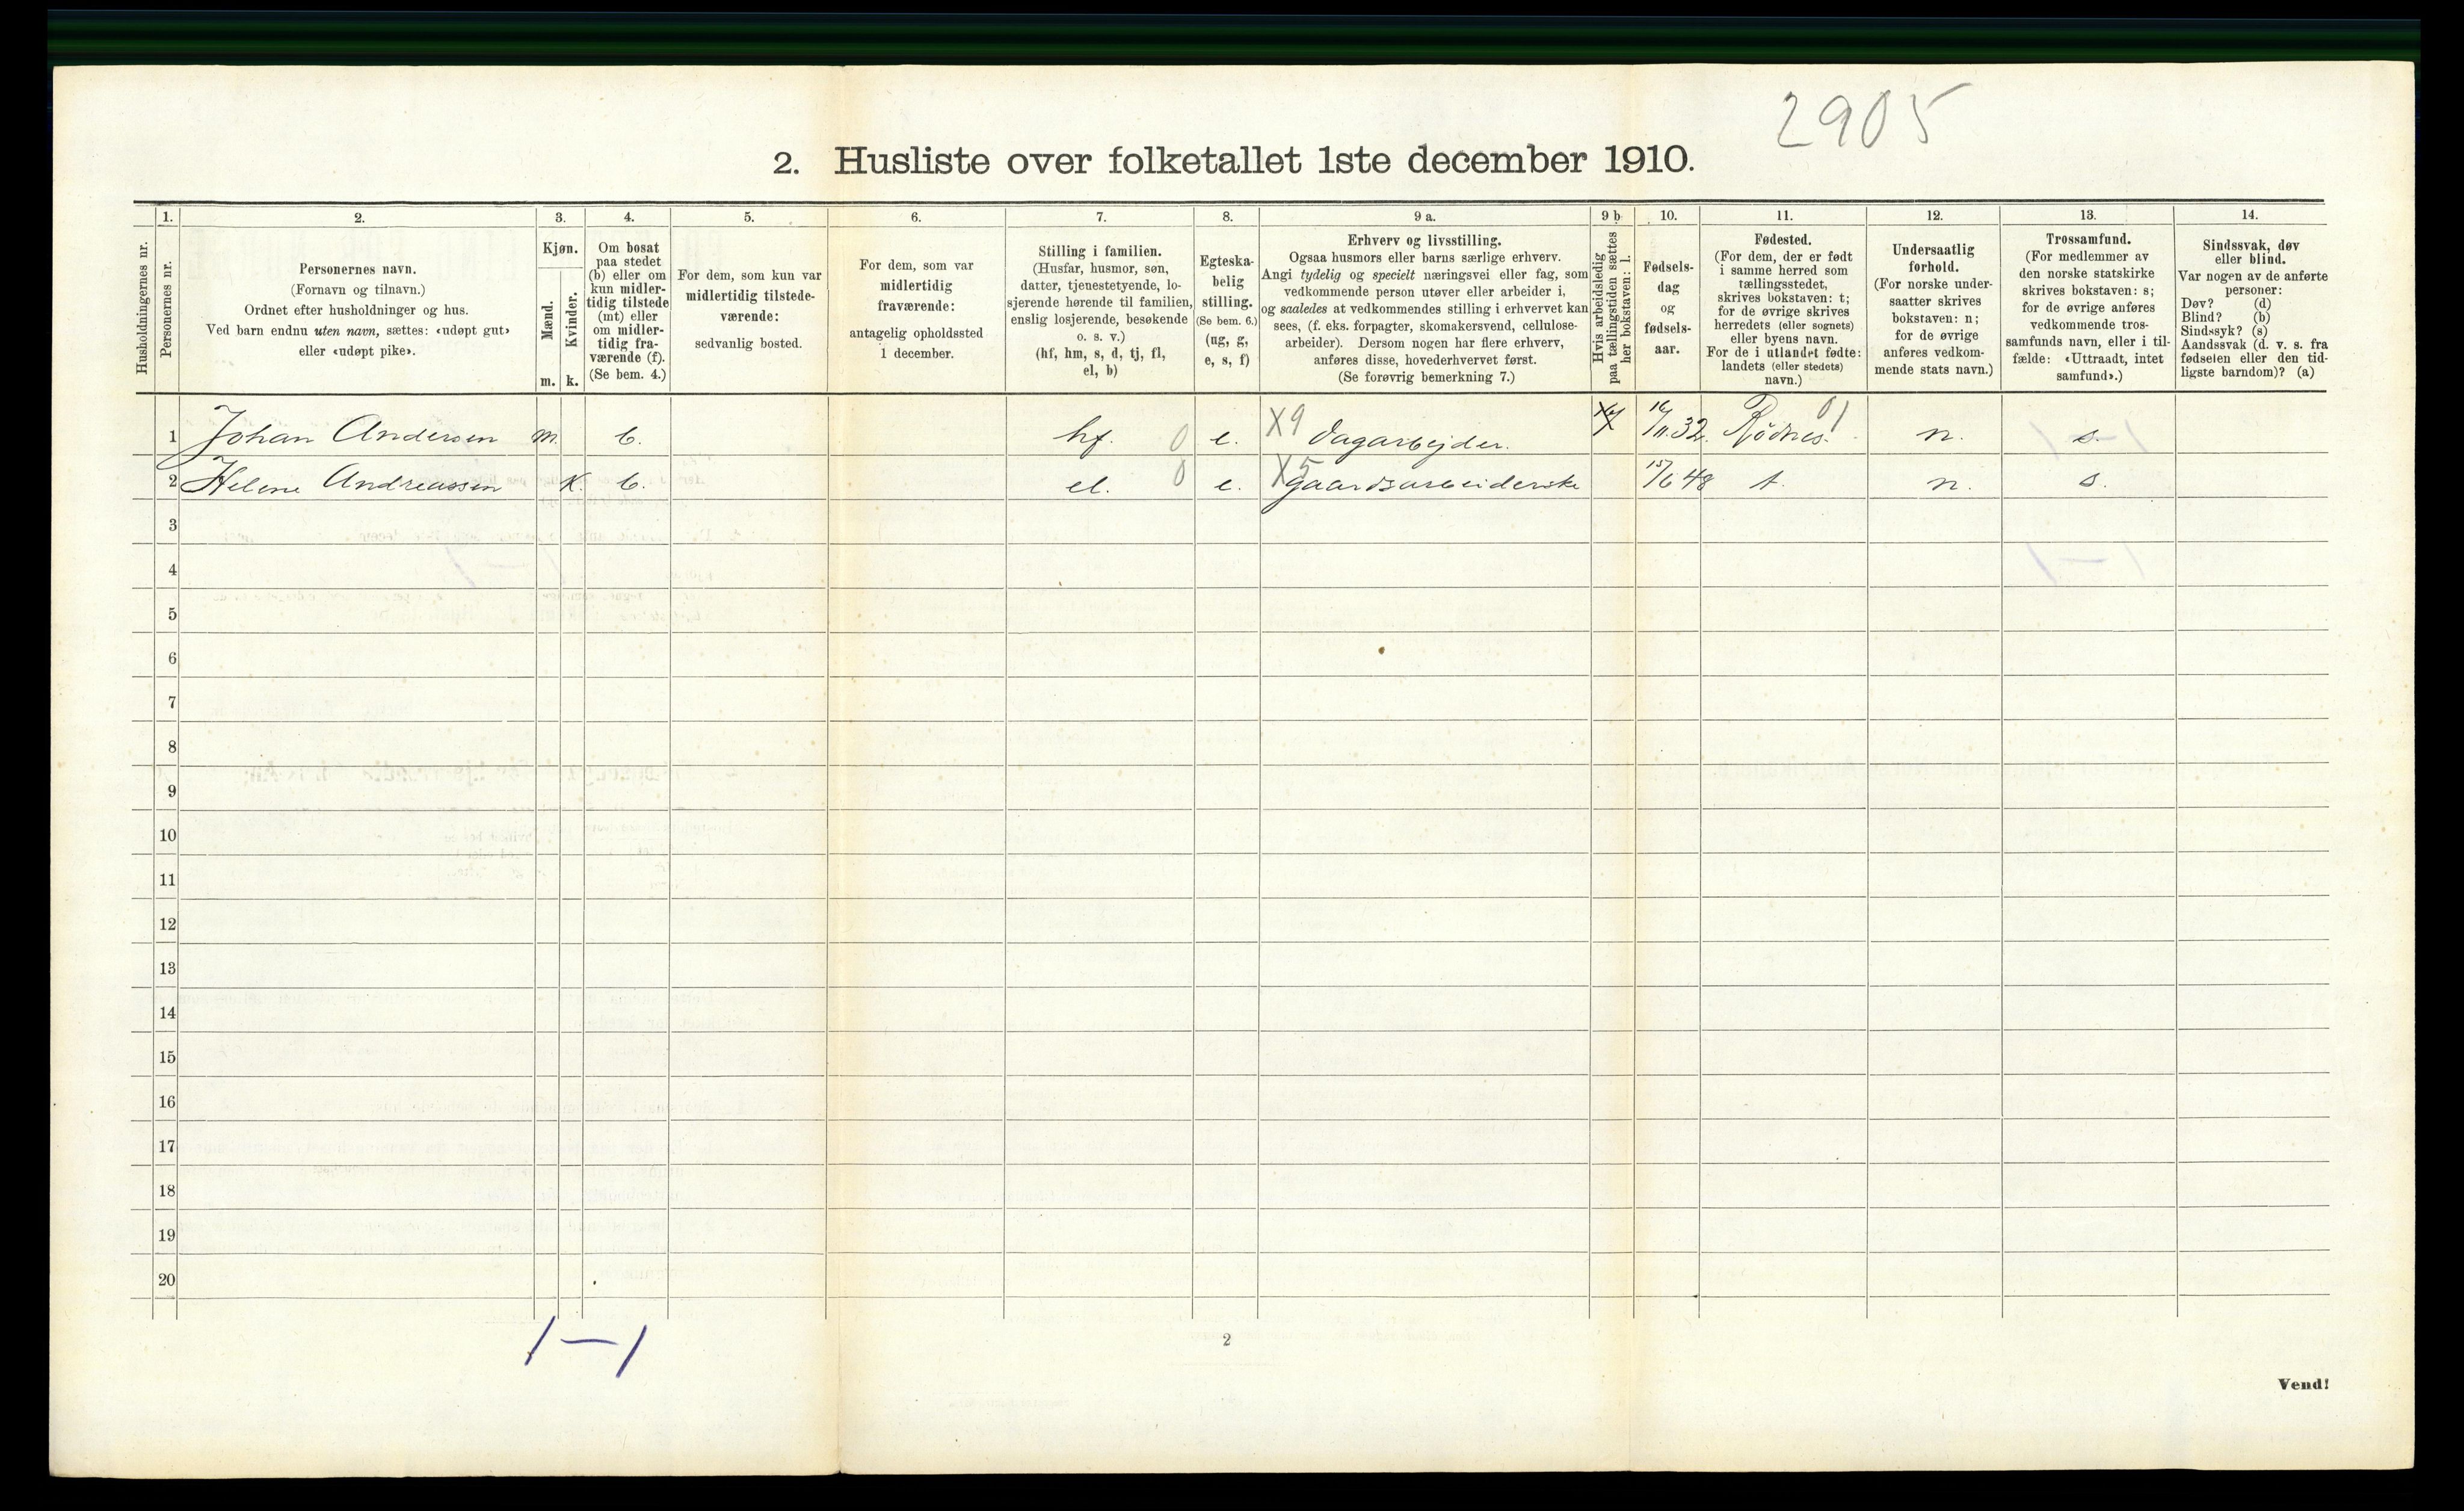 2905
2. Husliste over folketallet 1ste december 1910.
Husholdningernes nr.
1.
Personernes nr.
2.
Personernes navn.
(Fornavn og tilnavn.)
Ordnet efter husholdninger og hus.
Ved barn endnu uten navn, sættes: «udøpt gut»
eller «udøpt pike».
3.
Kjøn.
Mænd.
Kvinder.
m. k.
4.
Om bosat
paa stedet
(b) eller om
kun midler-
tidig tilstede
(mt) eller
om midler-
tidig fra-
værende (f).
(Se bem. 4.)
5.
For dem, som kun var
midlertidig tilstede-
værende:
sedvanlig bosted.
6.
For dem, som var
midlertidig
fraværende:
antagelig opholdssted
1 december.
7.
Stilling i familien.
(Husfar, husmor, søn,
datter, tjenestetyende, lo-
sjerende hørende til familien,
enslig losjerende, besøkende
o. s. v.)
(hf, hm, s, d, tj, fl,
el, b)
8.
Egteska-
belig
stilling.
(Se bem. 6.)
(ug, g,
e, s, f)
9 a.
Erhverv og livsstilling.
Ogsaa husmors eller barns særlige erhverv.
Angi tydelig og specielt næringsvei eller fag, som
vedkommende person utøver eller arbeider i,
og saaledes at vedkommendes stilling i erhvervet kan
sees, (f. eks. forpagter, skomakersvend, cellulose-
arbeider). Dersom nogen har flere erhverv,
anføres disse, hovederhvervet først.
(Se forøvrig bemerkning 7.)
9 b
Hvis arbeidsledig
paa tællingstiden sættes
her bokstaven: l.
10.
Fødsels-
dag
og
fødsels-
aar.
11.
Fødested.
(For dem, der er født
i samme herred som
tællingsstedet,
skrives bokstaven: t;
for de øvrige skrives
herredets (eller sognets)
eller byens navn.
For de i utlandet fødte:
landets (eller stedets)
navn.)
12.
Undersaatlig
forhold.
(For norske under-
saatter skrives
bokstaven: n;
for de øvrige
anføres vedkom-
mende stats navn.)
13.
Trossamfund.
(For medlemmer av
den norske statskirke
skrives bokstaven: s;
for de øvrige anføres
vedkommende tros-
samfunds navn, eller i til-
fælde: «Uttraadt, intet
samfund».)
14.
Sindssvak, døv
eller blind.
Var nogen av de anførte
personer:
Døv? (d)
Blind? (b)
Sindssyk? (s)
Aandssvak (d. v. s. fra
fødselen eller den tid-
ligste barndom)? (a)
1 Johan Andersen m. b. hf. 0 e. X9 Dagarbejder. 16/11.32. Rödnes. 01 n. s.
2 Helene Andreassen K. b. el. 0 e. X5 gaardsarbeiderske 15/6 48 t. n. s.
3
4
5
6
7
8
9
10
11
12
13
14
15
16
17
18
19
20
1-1
2
Vend!